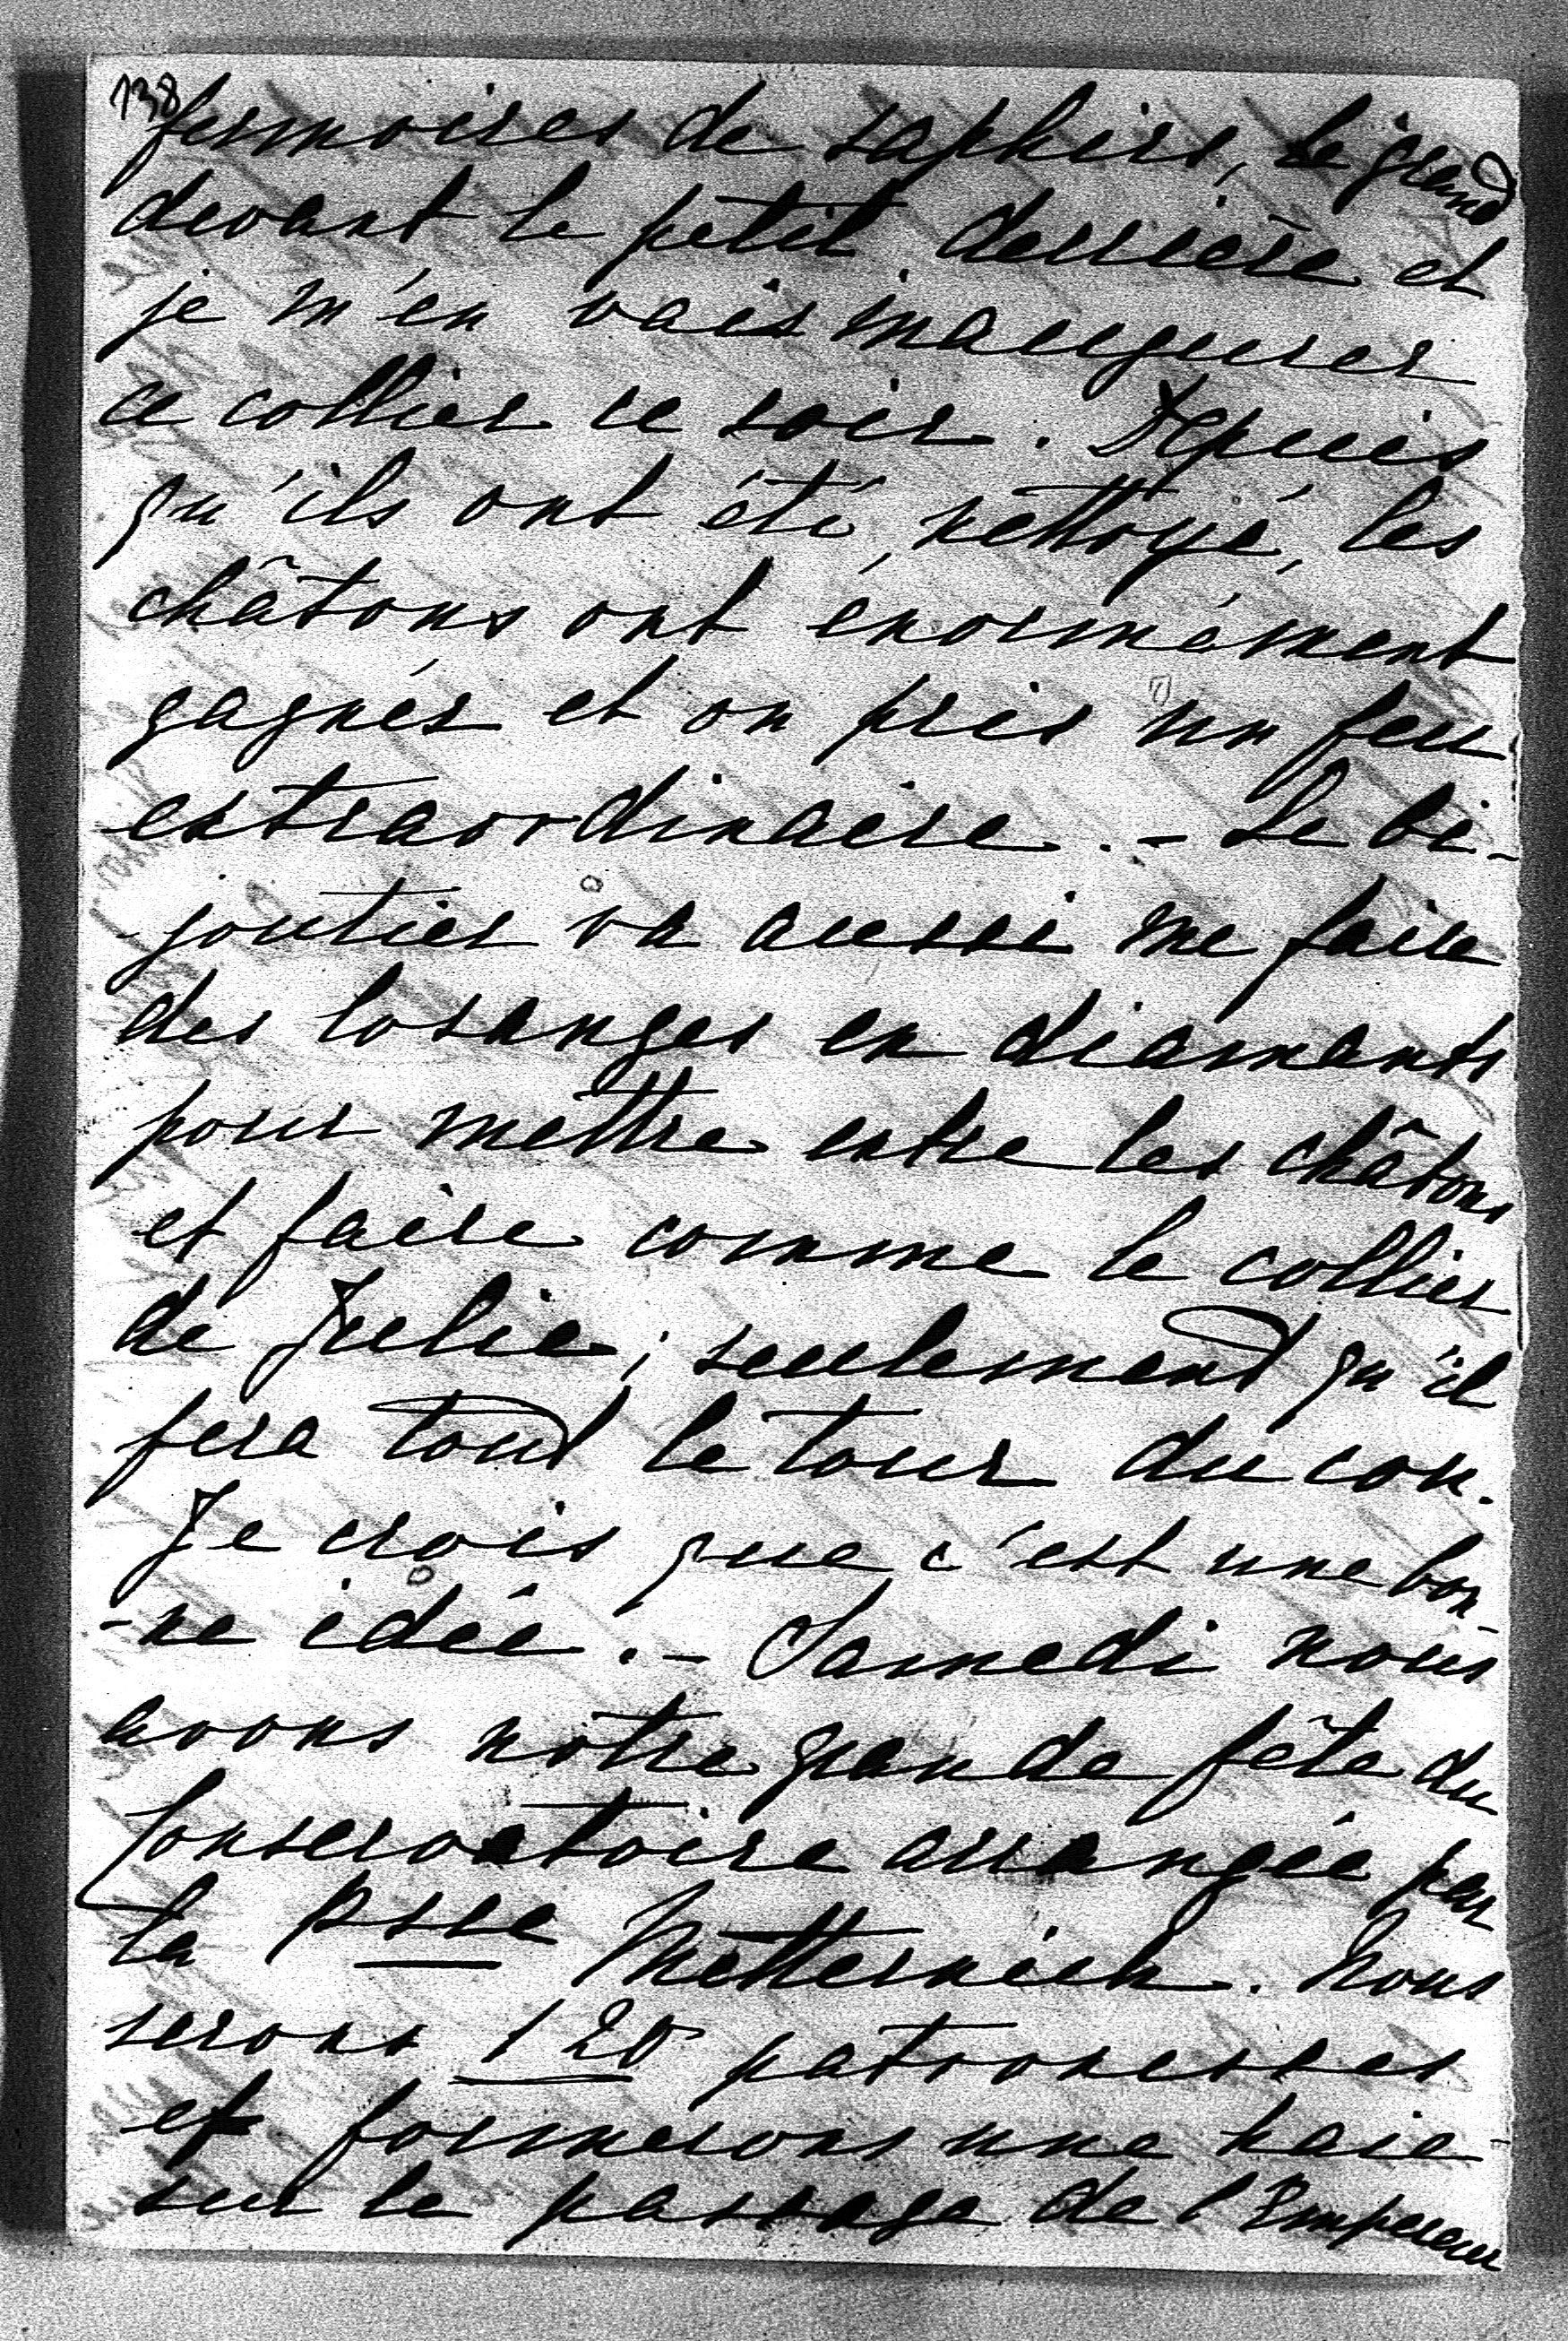 138
fermoires de saphirs, le grand
devant le petit derrière et
je m'en vais inaugurer
ce collier ce soir. Depuis
qu'ils ont été nettoyé, les
châtons ont énormément
gagnés et on pris un feu
extraordinaire. - Le bi-
joutier va aussi me faire
des losanges en diamants
pour mettre entre les châtons
et faire comme le collier
de Julie; seulement qu'il
fera tout le tour du cou.
Je crois que c'est une bon
-ne idée. - Samedi nous
avons notre grande fête du
Conservatoire arrangée par
la Psse Metternich. Nous
serons 120 patronesses
et formerons une haie
sur le passage de l'Empereur